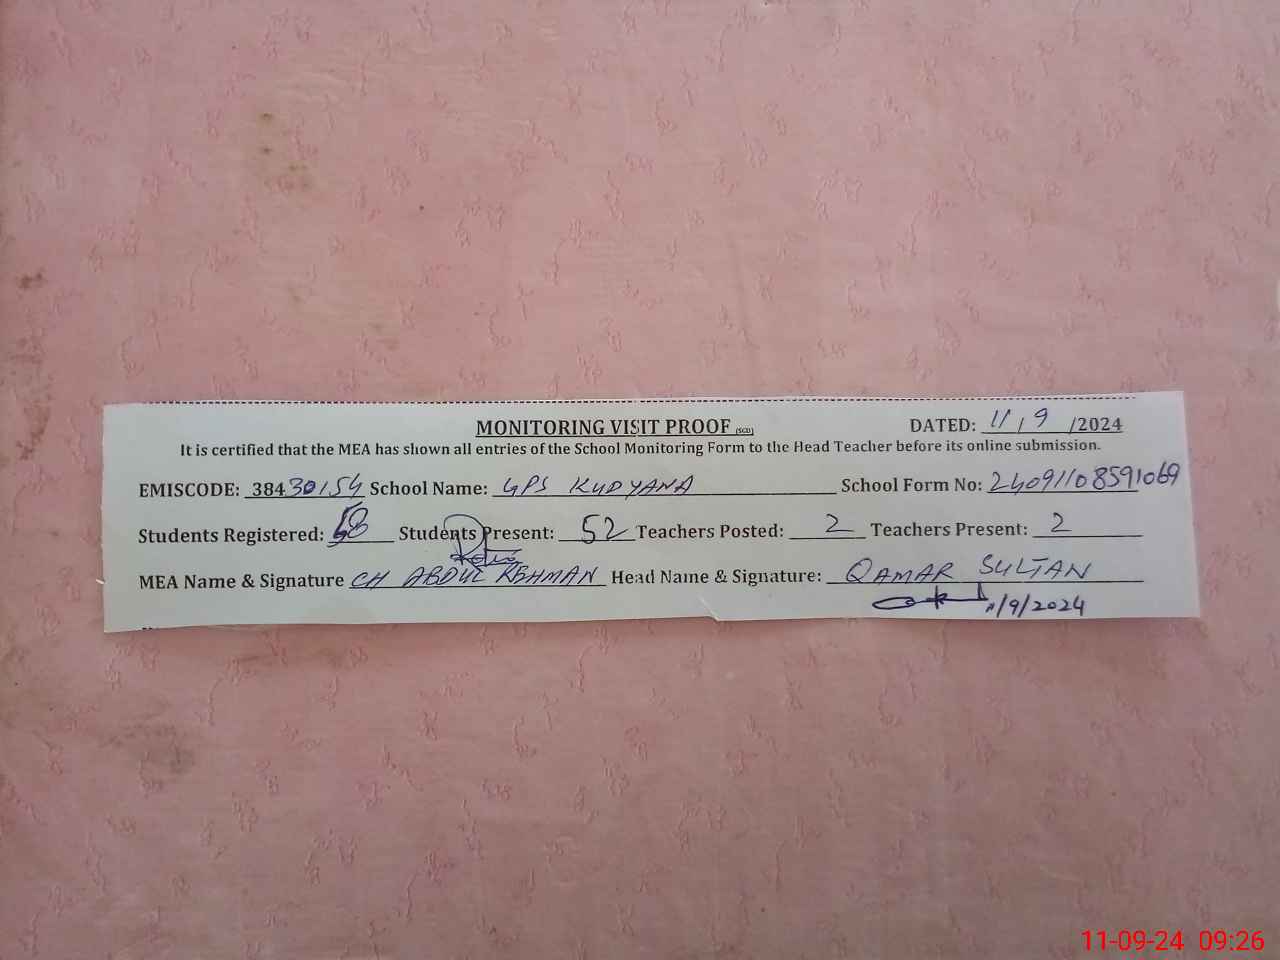 MONITORING VISIT PROOF (SGD) DATED: 11/9/2024
It is certified that the MEA has shown all entries of the School Monitoring Form to the Head Teacher before its online submission.
EMISCODE: 38430154 School Name: GPS KUDYANA School Form No: 24091108591069
Students Registered: Students Present: 52 Teachers Posted: 2 Teachers Present: 2
MEA Name & Signature CH ABDUL REHMAN Head Name & Signature: QAMAR SULTAN
11/9/2024
11-09-24 09:26